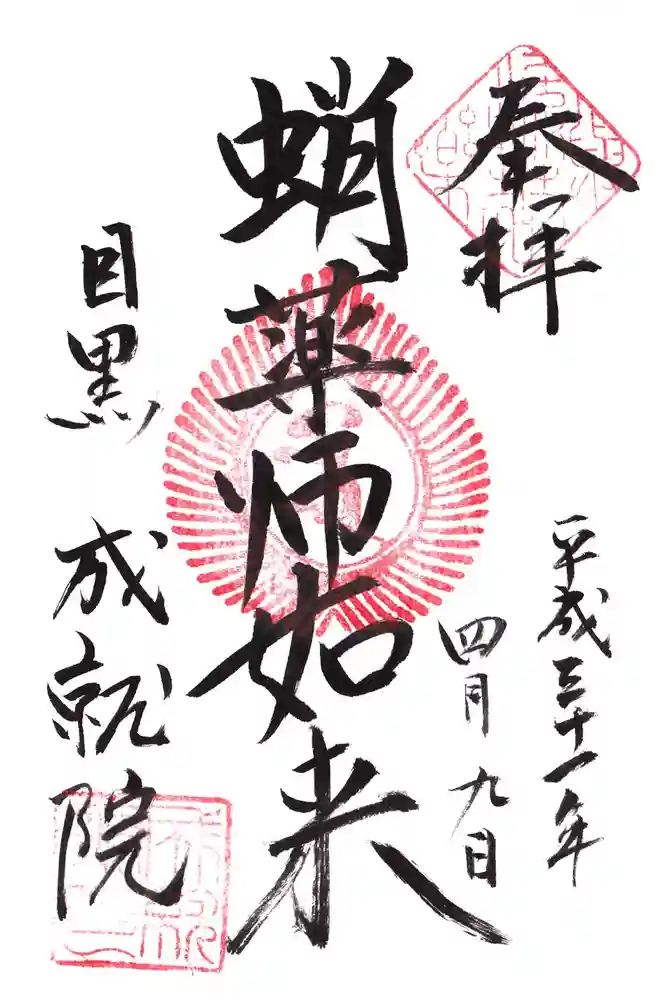 奉拝
平成三十一年
四月九日
蛸薬師如来
目黒
成就院